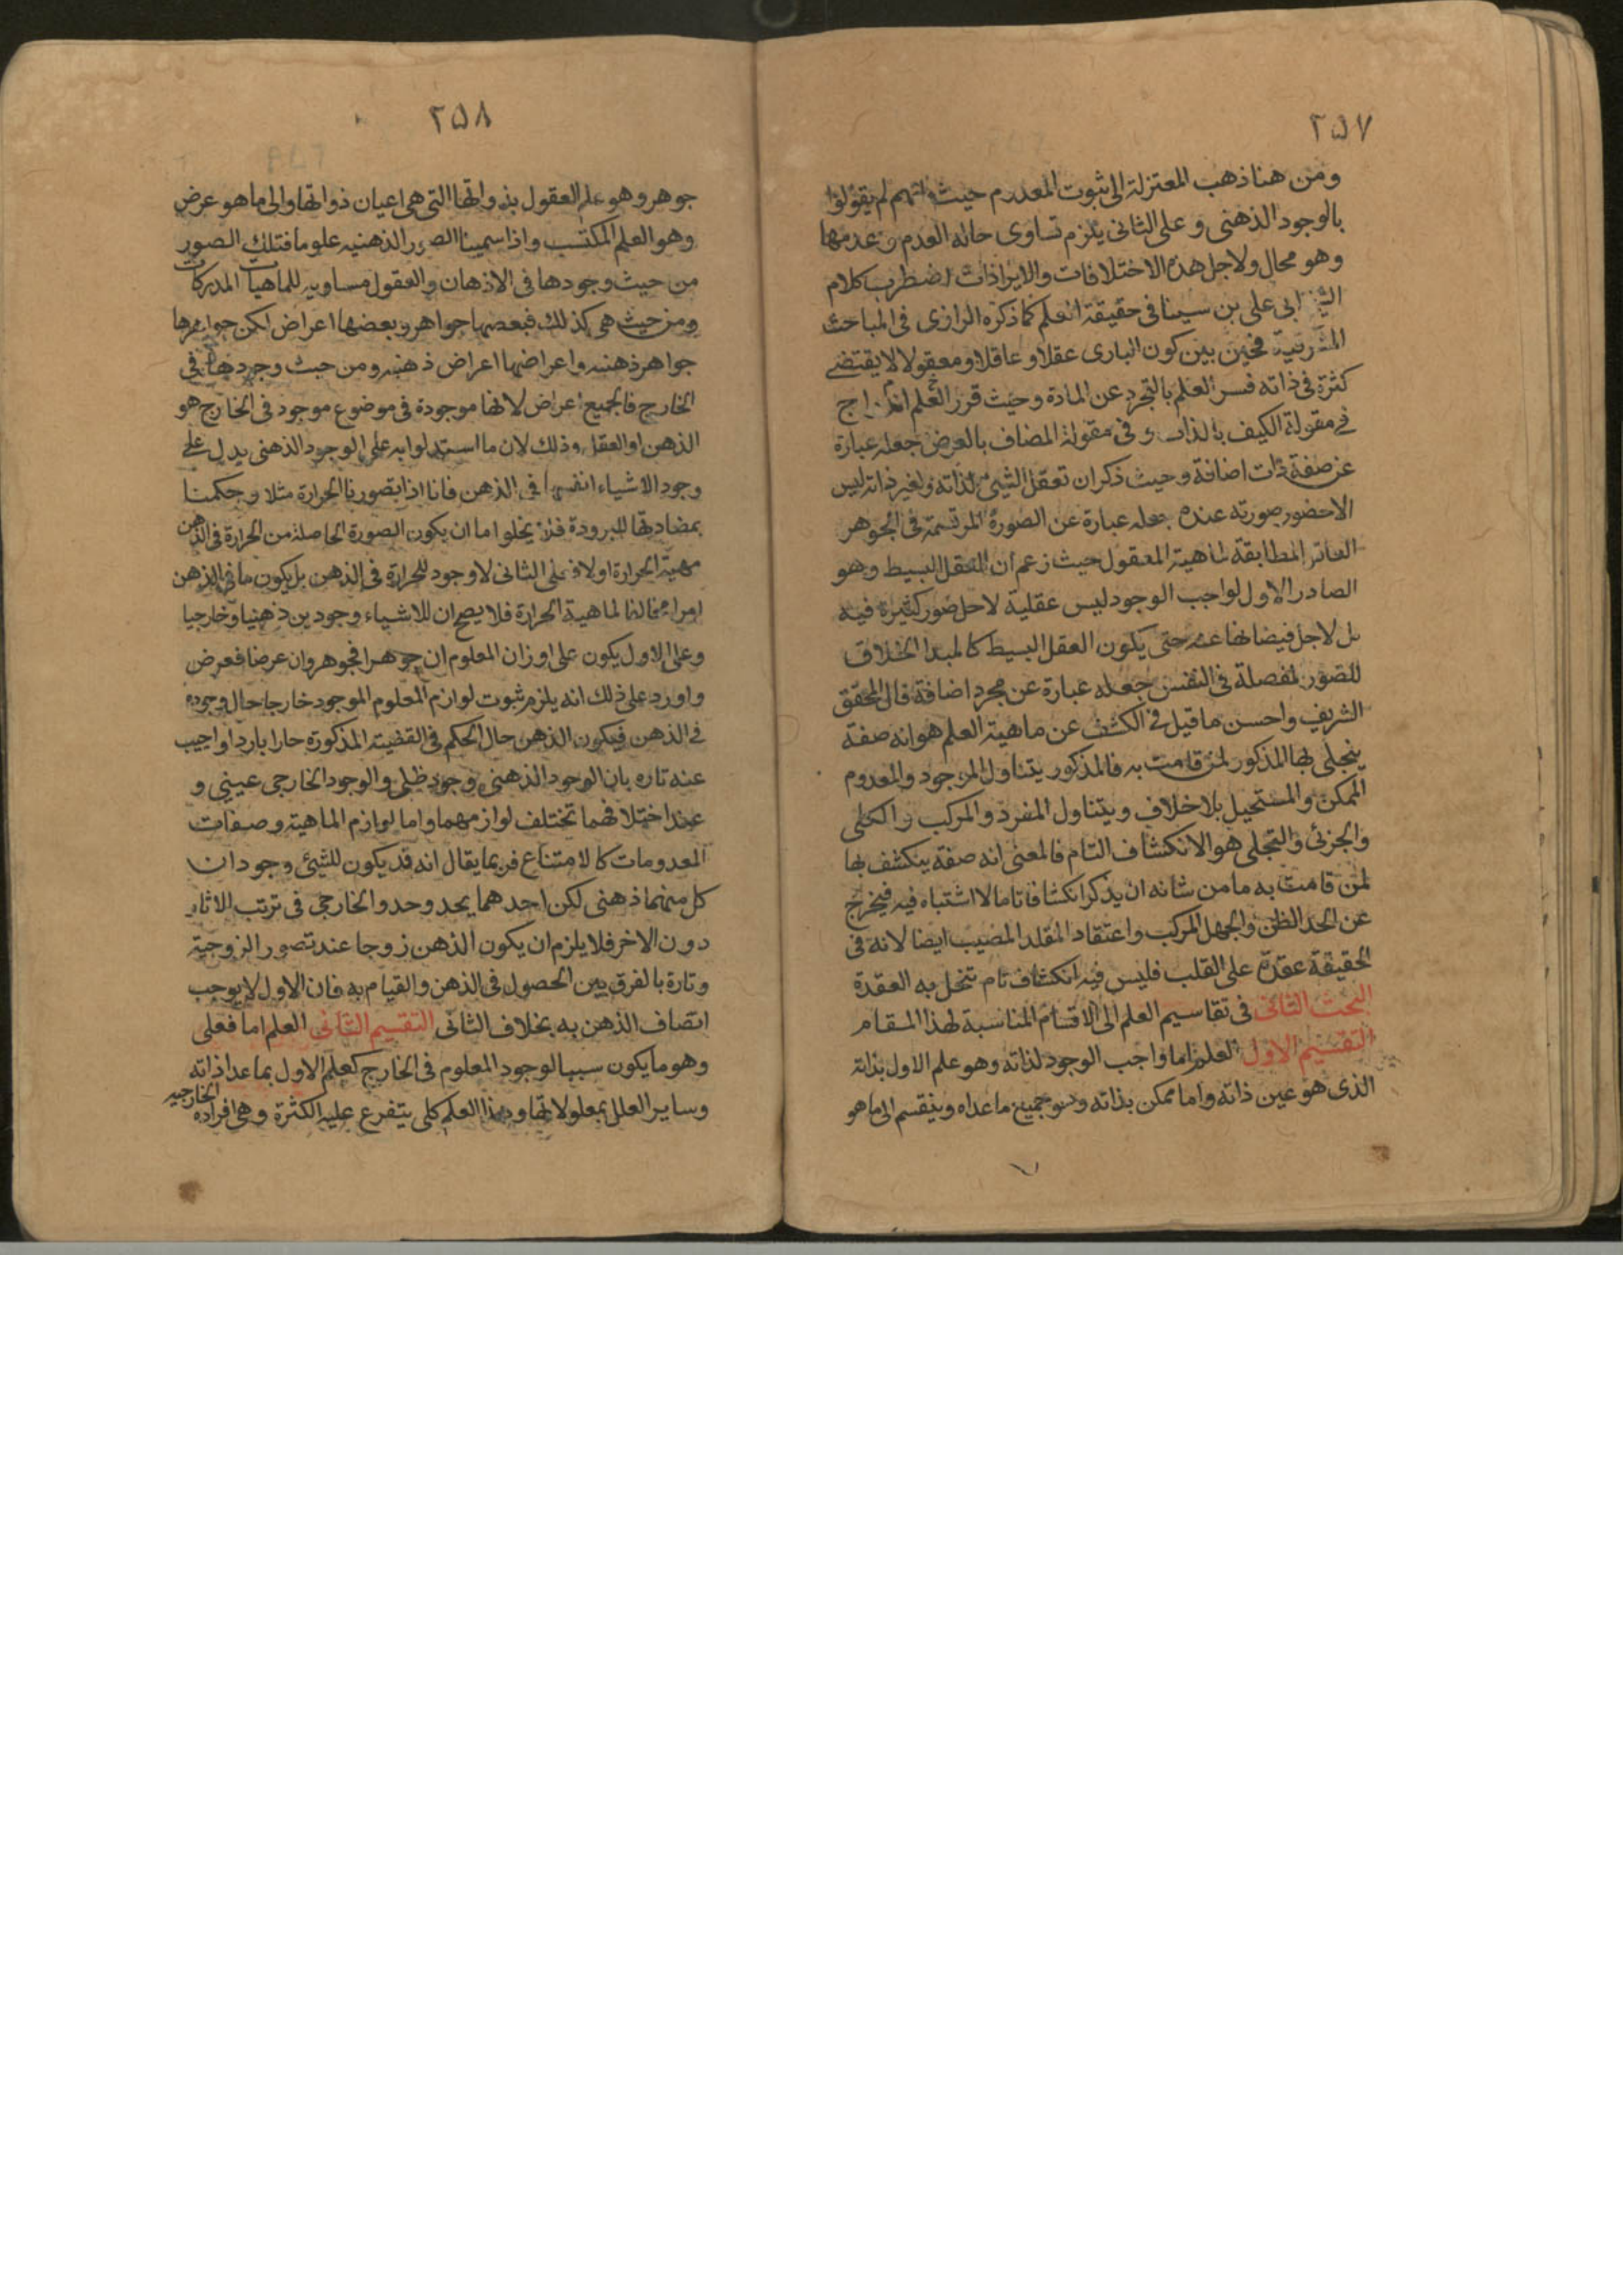 ٢٥٧
ومن هنا ذهب المعتزلة الى ثبوت المعدوم حيث انهم لم يقولوا
بالوجود الذهنى و على الثانى يلزم تساوى حاله العدم و عدمها
وهو محال ولاجل هذه الاختلافات والايرادات اضطرب كلام
الشيخ ابى على بن سينا فى حقيقة العلم كما ذكره الرازى فى المباحث
المشرقية فحين بين كون البارى عقلا و عاقلا و معقولا لا يقتضى
كثرة فى ذاته فسر العلم بالتجرد عن المادة وحيث قرر العلم
فى مقولة الكيف بالذات و فى مقولة المضاف بالعرض جعله عبارة
عن صفة ذات اضافة وحيث ذكر ان تعقل الشئ لذاته ولغير ذاته ليس
الا حضور صورته عنده جعله عبارة عن الصورة المرتسمة فى الجوهر
العاقل المطابقة لماهية المعقول حيث زعم ان العقل البسيط وهو
الصادر الاول لواجب الوجود ليس عقلية لاجل صور كثيرة فيه
بل لاجل فيضانها عنه حتى يكون العقل البسيط كالمبدا الخلاق
للصور المفصلة فى النفس جعله عبارة عن مجرد اضافة قال المحقق
الشريف واحسن ما قيل فى الكشف عن ماهية العلم هو انه صفة
ينجلى بها المذكور لمن قامت به فالمذكور يتناول الموجود والمعدوم
الممكن والمستحيل بلا خلاف ويتناول المفرد والمركب والكلى
والجزئى والتجلى هو الانكشاف التام فالمعنى انه صفة ينكشف بها
لمن قامت به ما من شانه ان يذكر انكشافا تاما لا اشتباه فيه فيخرج
عن الحد الظن والجهل المركب واعتقاد المقلد المصيب ايضا لانه فى
الحقيقة عقدة على القلب فليس فيه انكشاف تام تنحل به العقدة
البحث الثانى فى تقاسيم العلم الى الاقسام المناسبة لهذا المقام
التقسيم الاول العلم اما واجب الوجود لذاته وهو علم الاول بذاته
الذى هو عين ذاته واما ممكن بذاته وهو جميع ما عداه وينقسم الى ما هو
٢٥٨
جوهر وهو علم العقول بذواتها التى هى اعيان ذواتها والى ما هو عرض
وهو العلم المكتسب واذا سمينا الصور الذهنيه علوما فتلك الصور
من حيث وجودها فى الاذهان والعقول مساويه للماهيات المدركات
ومن حيث هى كذلك فبعضها جواهر وبعضها اعراض لكن جواهرها
جواهر ذهنيه واعراضها اعراض ذهنيه ومن حيث وجودها فى
الخارج فالجميع اعراض لانها موجودة فى موضوع موجود فى الخارج هو
الذهن او العقل وذلك لان ما استدلوا به على الوجود الذهنى يدل على
وجود الاشياء انفسها فى الذهن فانا اذا تصورنا الحرارة مثلا وحكمنا
بمضادتها للبرودة فلا يخلوا اما ان يكون الصورة الحاصلة من الحرارة فى الذهن
مهية الحرارة اولا فعلى الثانى لا وجود للحرارة فى الذهن بل يكون ما فى الذهن
امرا مخالفا لماهية الحرارة فلا يصح ان للاشياء وجودين ذهنيا وخارجيا
وعلى الاول يكون على اوزان المعلوم ان جوهرا فجوهر وان عرضا فعرض
واورد على ذلك انه يلزم ثبوت لوازم المعلوم الموجود خارجا حال وجوده
فى الذهن فيكون الذهن حال الحكم فى القضية المذكورة حارا باردا واجيب
عنه تاره بان الوجود الذهنى وجود ظلى والوجود الخارجى عينى و
عند اختلافهما تختلف لوازمهما واما لوازم الماهية وصفات
المعدومات كالامتناع فربما يقال انه قد يكون للشيئ وجودان
كل منهما ذهنى لكن احدهما يحد وحد والخارجى فى ترتب الاثار
دون الاخر فلا يلزم ان يكون الذهن زوجا عند تصور الزوجية
وتارة بالفرق بين الحصول فى الذهن والقيام به فان الاول لا يوجب
اتصاف الذهن به بخلاف الثانى التقسيم الثانى العلم اما فعلى
وهو ما يكون سببا لوجود المعلوم فى الخارج كعلم الاول بما عدا ذاته
وساير العلل بمعلولاتها وهذا العلم كلى يتفرع عليه الكثرة وهى افراده الخارجيه